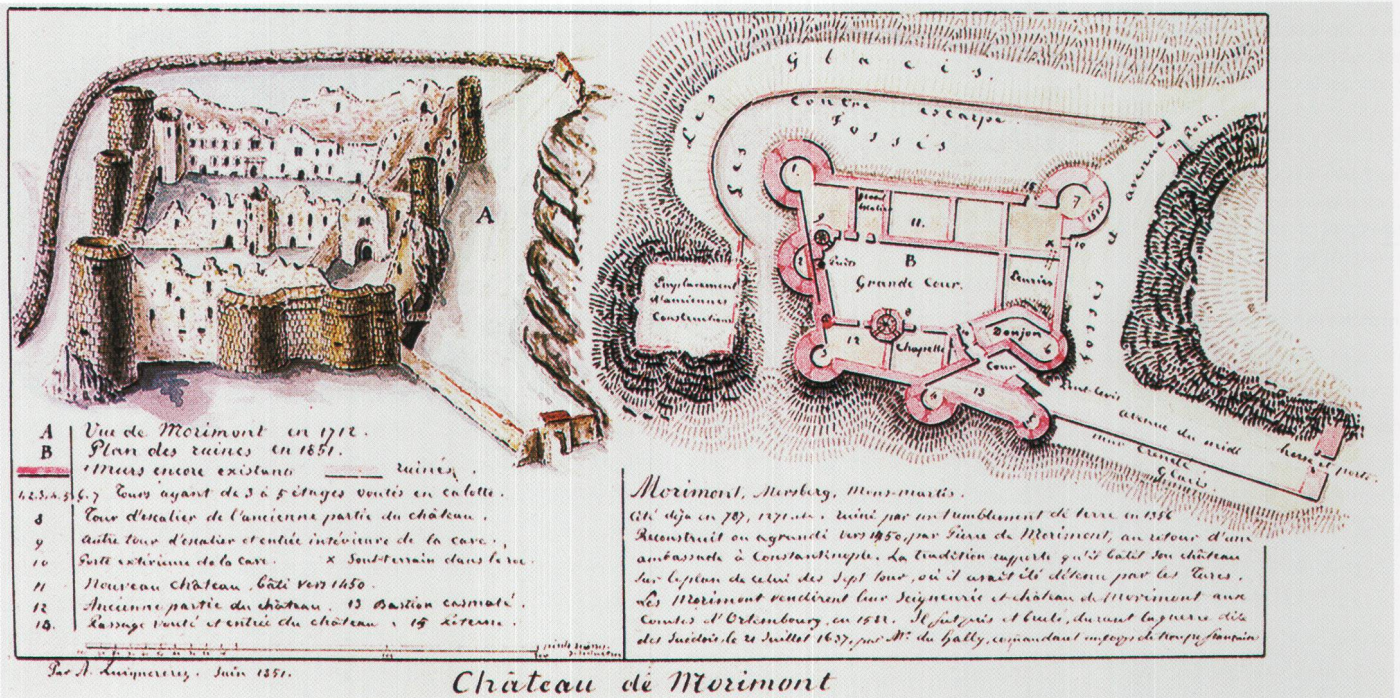 Les Glacis.
Contre escarpe
Les Fossés
avenue
Porte
A
1
7
1515
Grand Escalier
11.
9
10
x
2
Puits
B
Grande Cour.
Ecuries
Emplacement
d'anciennes
Constructions
Fossés
8
12
Chapelle
Donjon
6
Cour
13
4
5
Pont levis
avenue du midi
mur crénelé
Glacis
herse et porte.
A Vue de Morimont en 1712.
B Plan des ruines en 1851.
Murs encore existans ruinés.
1.2.3.4.5.6.7 Tours ayant de 3 à 5 étages voutés en calotte.
8 Tour d'escalier de l'ancienne partie du château.
9 autre tour d'escalier et entrée intérieure de la cave.
10 Porte extérieure de la cave. x Souterrain dans le roc.
11 Nouveau château, bâti vers 1450.
12 Ancienne partie du château. 13 Bastion casmaté.
13. Passage vouté et entrée du château. 15 Poterne.
Morimont, Mersberg, Mons-martis.
Cité déja en 787, 1271 etc. ruiné par un tremblement de terre en 1356
Reconstruit ou agrandi vers 1450, par Pierre de Morimont, au retour d'une
ambassade à Constantinople. La tradition rapporte qu'il bâtit son château
sur le plan de celui des sept tour, où il avait été détenu par les Turcs.
Les Morimont vendirent leur Seigneurie et château de Morimont aux
comtes d'Ortembourg, en 1582. Il fut pris et brulé, durant la guerre dite
des Suédois, le 21 Juillet 1637, par Mr. du Hally, commandant un corps de troupe française
Par A. Quiquerez. Juin 1851.
Château de Morimont